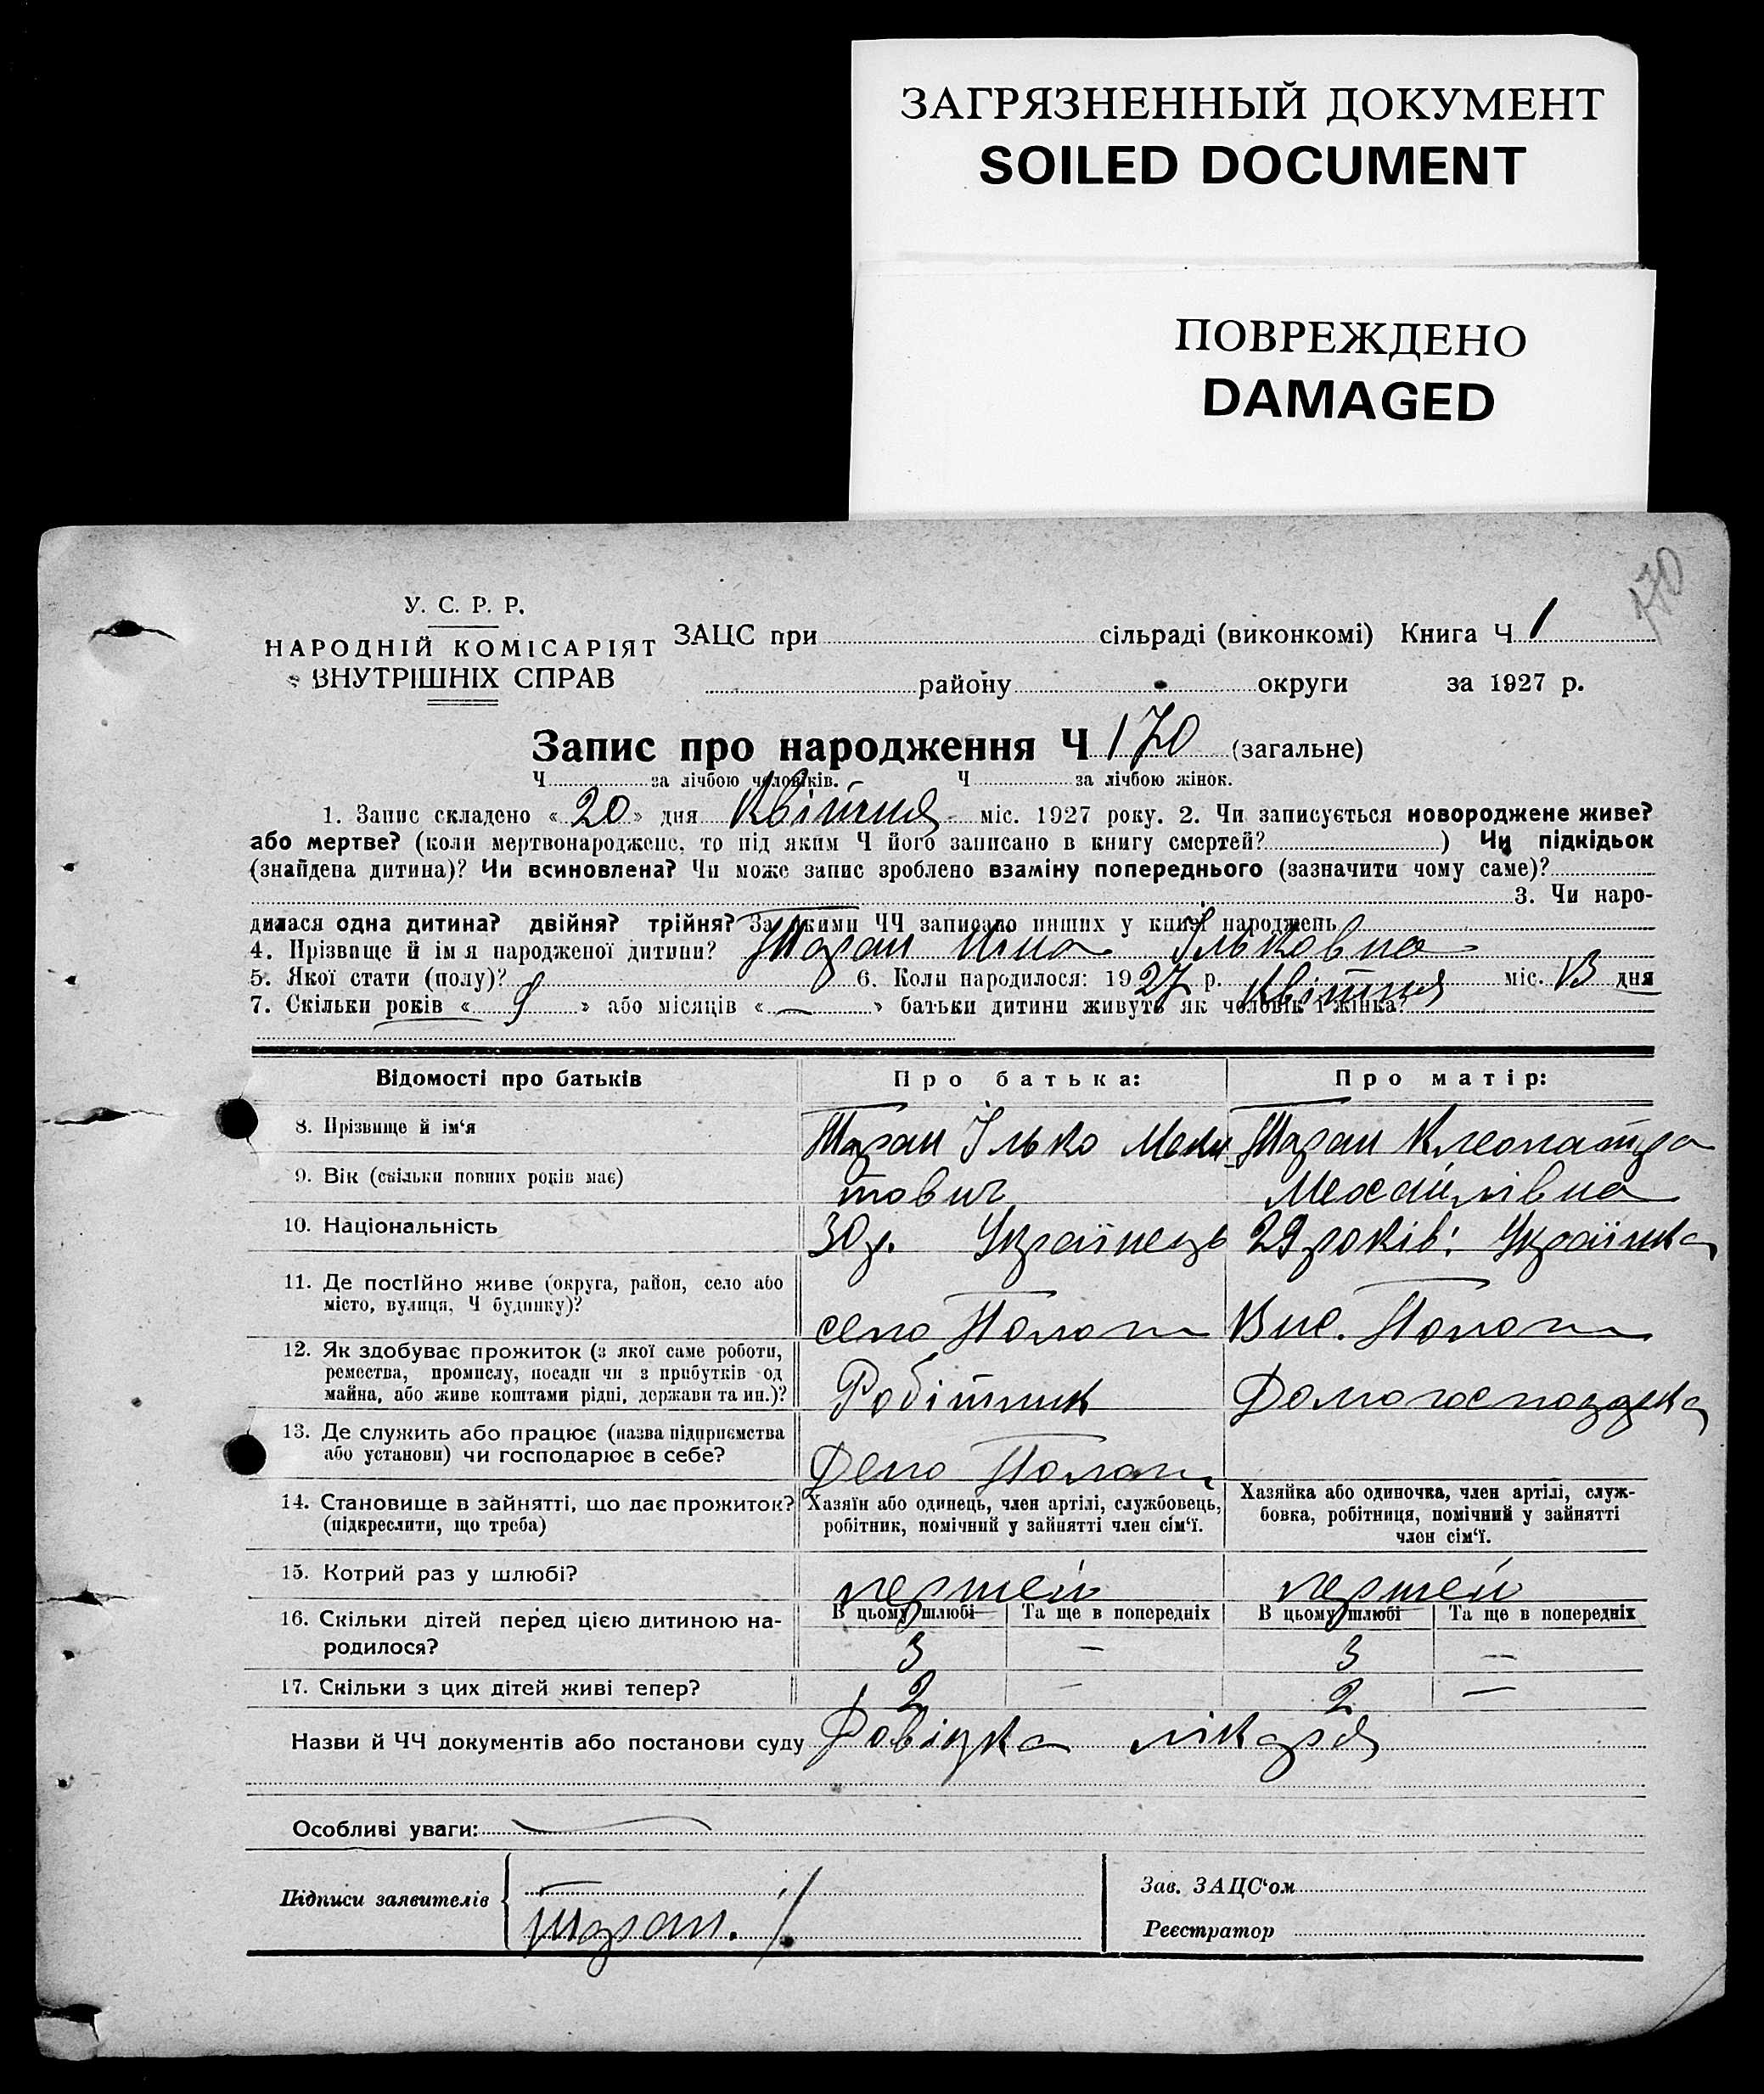 ЗАГРЯЗНЕННЫЙ ДОКУМЕНТ
SOILED DOCUMENT
ПОВРЕЖДЕНО
DAMAGED
170
У. С. Р. Р.
НАРОДНІЙ КОМІСАРІЯТ
ВНУТРІШНІХ СПРАВ
ЗАЦС при сільраді (виконкомі) Книга Ч 1
району округи за 1927 р.
Запис про народження Ч 170 (загальне)
Ч за лічбою чоловіків. Ч за лічбою жінок.
1. Запис складено « 20 » дня Квітня міс. 1927 року. 2. Чи записується новороджене живе?
або мертве? (коли мертвонароджене, то під яким Ч його записано в книгу смертей? ) Чи підкідьок
(знайдена дитина)? Чи всиновлена? Чи може запис зроблено взаміну попереднього (зазначити чому саме)?
3. Чи наро-
дилася одна дитина? двійня? трійня? За якими ЧЧ записано инших у книзі народжень
4. Прізвище й ім я народженої дитини? Таран Ніна Ільковна
5. Якої стати (полу)? 6. Коли народилося: 1927 р. Квітня міс. 13 дня
7. Скільки років « » або місяців « — » батьки дитини живуть як чоловік і жінка?
Відомості про батьків
Про батька:
Про матір:
8. Прізвище й ім'я
Таран Ілько Мики-
Таран Клеопатра
9. Вік (скільки повних років має)
тович
Механлівна
10. Національність
30 р. Українець
29 років: Українка
11. Де постійно живе (округа, район, село або
місто, вулиця, Ч будинку)?
село Пологи
Вис. Пологи
12. Як здобуває прожиток (з якої саме роботи,
ремества, промислу, посади чи з прибутків од
майна, або живе коштами рідні, держави та ин.)?
Робітник
Домогосподарка
13. Де служить або працює (назва підприємства
або установи) чи господарює в себе?
Депо Пологи
14. Становище в зайнятті, що дає прожиток?
(підкреслити, що треба)
Хазяїн або одинець, член артілі, службовець,
робітник, помічний у зайнятті член сім'ї.
Хазяйка або одиночка, член артілі, служ-
бовка, робітниця, помічний у зайнятті
член сім'ї.
15. Котрий раз у шлюбі?
першей
першей
16. Скільки дітей перед цією дитиною на-
родилося?
В цьому шлюбі Та ще в попередніх
В цьому шлюбі Та ще в попередніх
3 —
3 —
17. Скільки з цих дітей живі тепер?
2 —
2 —
Назви й ЧЧ документів або постанови суду Довідка лікаря
Особливі уваги:
Підписи заявителів
Таран.
Зав. ЗАЦС'ом
Реєстратор